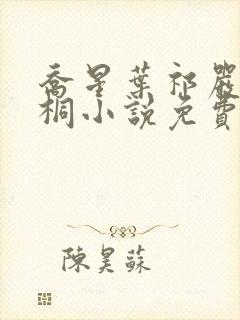 喬星葉祁嚴
桐小說免費
陳昊蘇